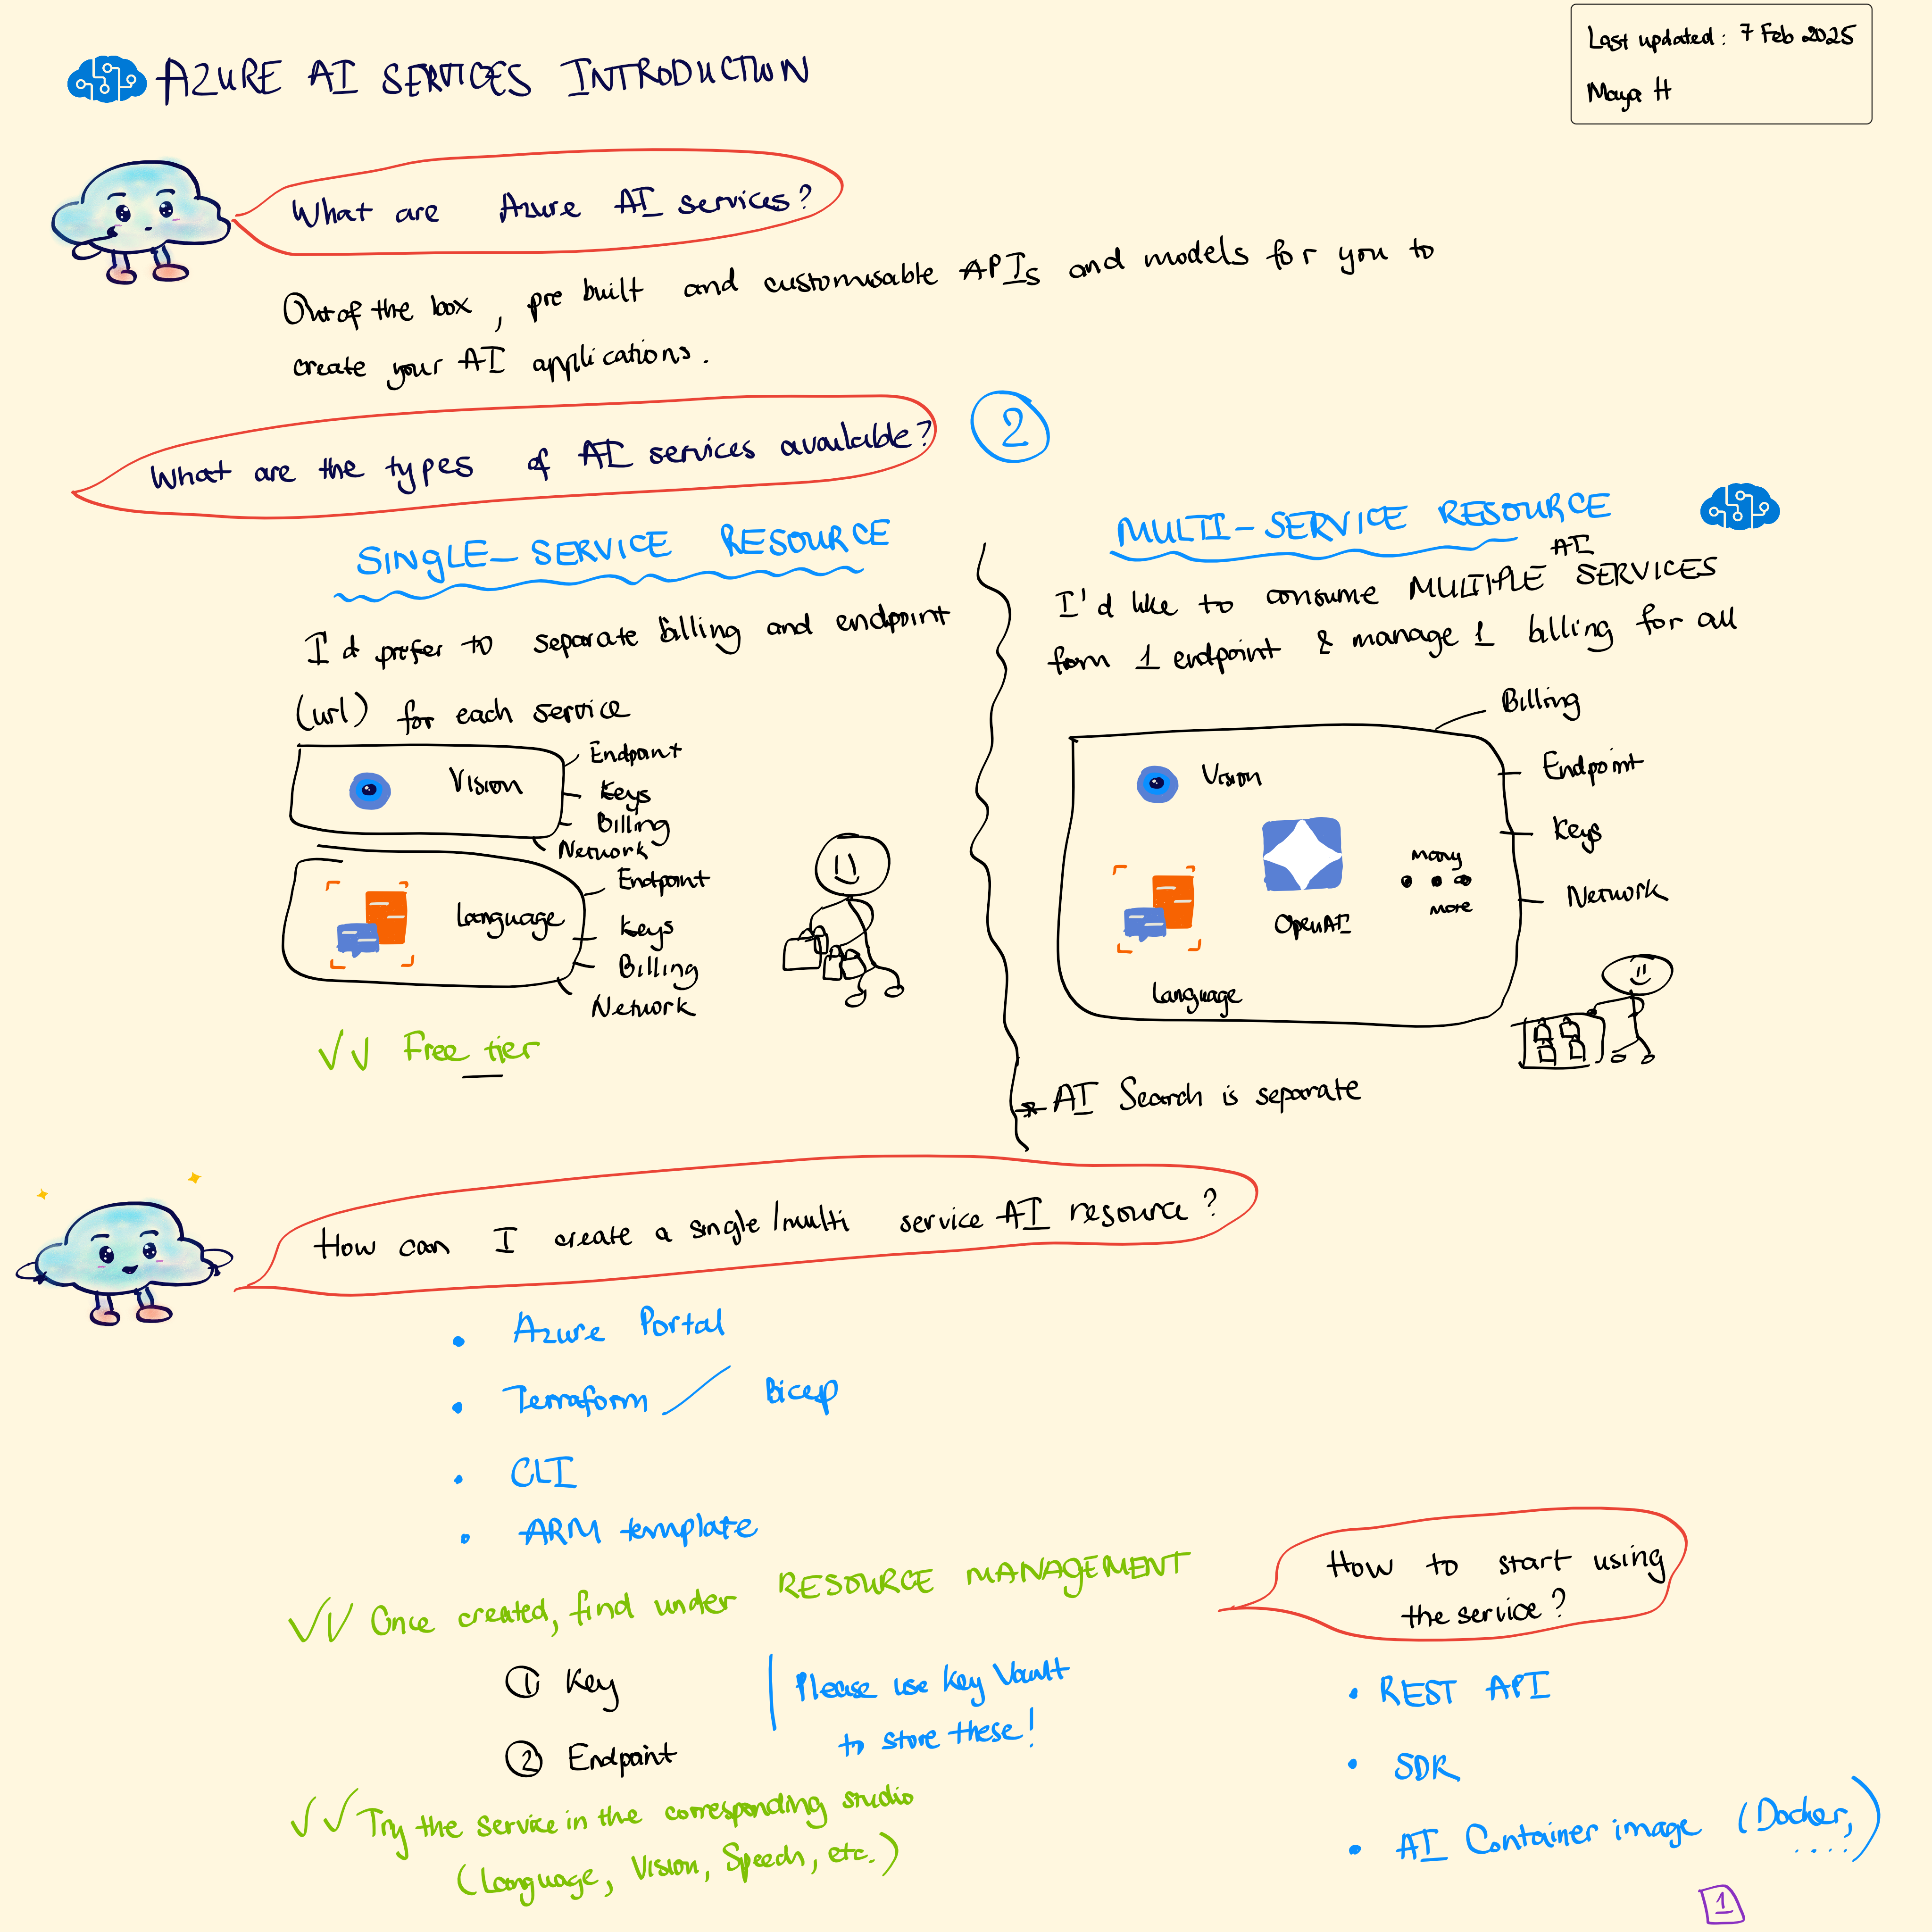 AZURE AI SERVICES INTRODUCTION
Last updated: 7 Feb 2025
Maya H
What are Azure AI services?
Out of the box, pre built and customisable APIs and models for you to
create your AI applications.
What are the types of AI services available?
2
SINGLE-SERVICE RESOURCE
I'd prefer to separate billing and endpoint
(url) for each service
Vision
Endpoint
Keys
Billing
Network
Language
Endpoint
Keys
Billing
Network
Free tier
MULTI-SERVICE RESOURCE
I'd like to consume MULTIPLE AI SERVICES
from 1 endpoint & manage 1 billing for all
Billing
Endpoint
Keys
Network
Vision
OpenAI
many
more
Language
* AI Search is separate
How can I create a single/multi service AI resource?
• Azure Portal
• Terraform / Bicep
• CLI
• ARM template
Once created, find under RESOURCE MANAGEMENT
1 Key
2 Endpoint
Please use Key Vault
to store these!
Try the service in the corresponding studio
(Language, Vision, Speech, etc.)
How to start using
the service?
• REST API
• SDK
• AI Container image (Docker, ....)
1